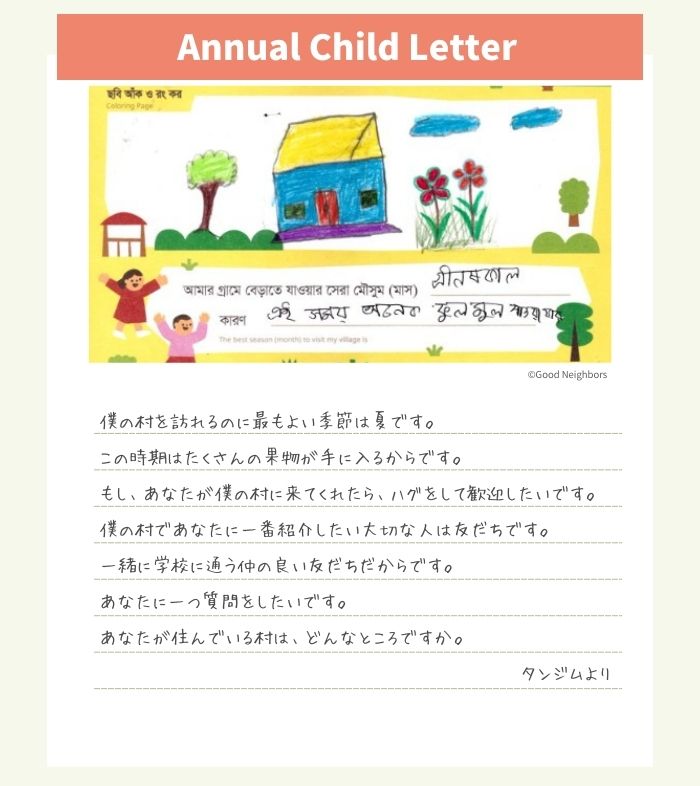 Annual Child Letter
ছবি আঁক ও রং কর
Coloring Page
আমার গ্রামে বেড়াতে যাওয়ার সেরা মৌসুম (মাস)
কারণ এই সময় অনেক ফুল
The best season (month) to visit my village is
©Good Neighbors
僕の村を訪れるのに最もよい季節は夏です。
この時期はたくさんの果物が手に入るからです。
もし、あなたが僕の村に来てくれたら、ハグをして歓迎したいです。
僕の村であなたに一番紹介したい大切な人は友だちです。
一緒に学校に通う仲の良い友だちだからです。
あなたに一つ質問をしたいです。
あなたが住んでいる村は、どんなところですか。
タンジムより